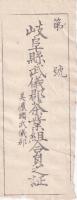 第　號
岐阜縣武儀郡金子組合員之証
美濃國武儀郡